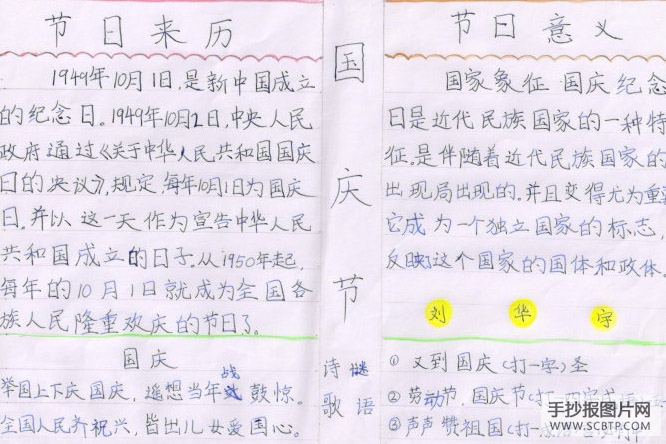 节日来历
1949年10月1日,是新中国成立
的纪念日。1949年10月2日,中央人民
政府通过《关于中华人民共和国国庆
日的决议》,规定每年10月1日为国庆
日。并以这一天作为宣告中华人民
共和国成立的日子。从1950年起,
每年的10月1日就成为全国各
族人民隆重欢庆的节日了。
国庆
举国上下庆国庆,遥想当年战鼓惊。
全国人民齐祝兴,皆出儿女爱国心。
国庆节
诗歌
谜语
节日意义
国家象征 国庆纪念
日是近代民族国家的一种特
征,是伴随着近代民族国家的
出现局出现的。并且变得尤为重
它成为一个独立国家的标志,
反映这个国家的国体和政体。
刘华宇
①又到国庆(打一字)圣
②劳动节,国庆节(打一
③声声赞祖国(打一
手抄报图片网
WWW.SCBTP.COM